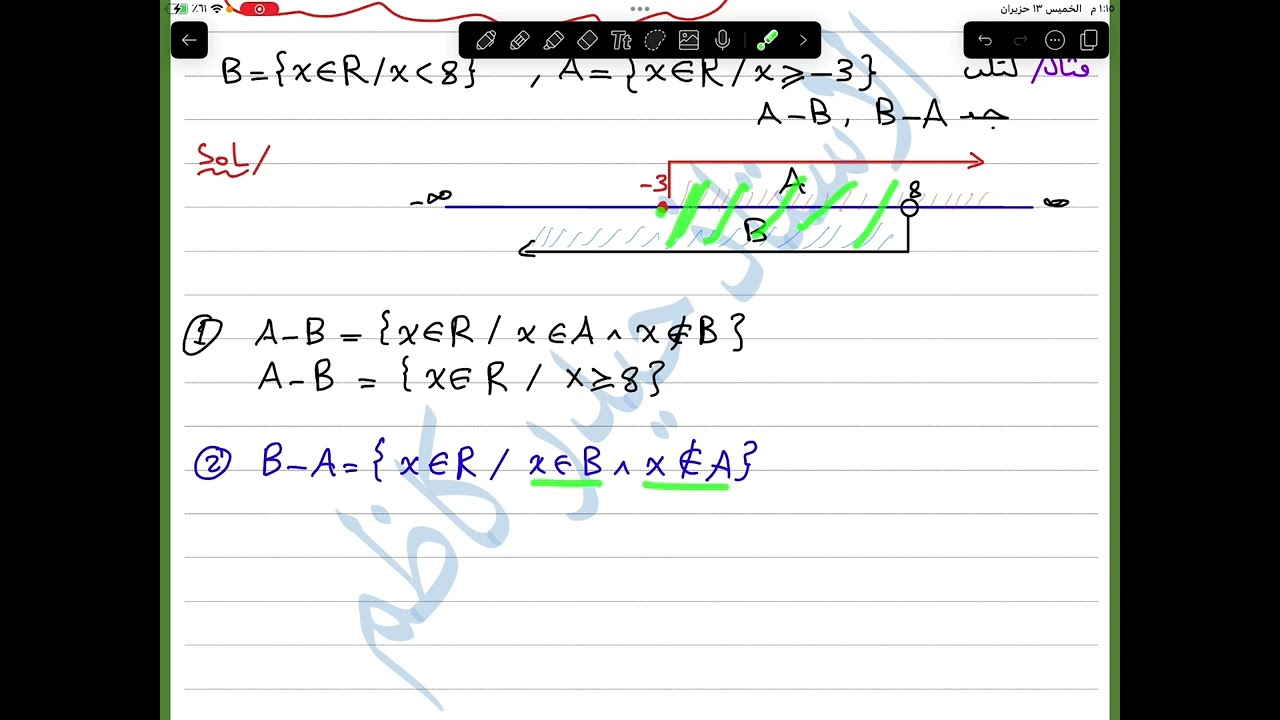 ١:١٥ م الخميس ١٣ حزيران ٦١٪
مثال/ لتكن A = {x∈R / x ≥ -3} , B = {x∈R / x < 8}
جد A-B , B-A
SoL/
-3 A 8
-∞ ∞
B
① A-B = {x∈R / x∈A ∧ x∉B}
A-B = {x∈R / x≥8}
② B-A = {x∈R / x∈B ∧ x∉A}
Tt
الاستاذ حيدر كاظم